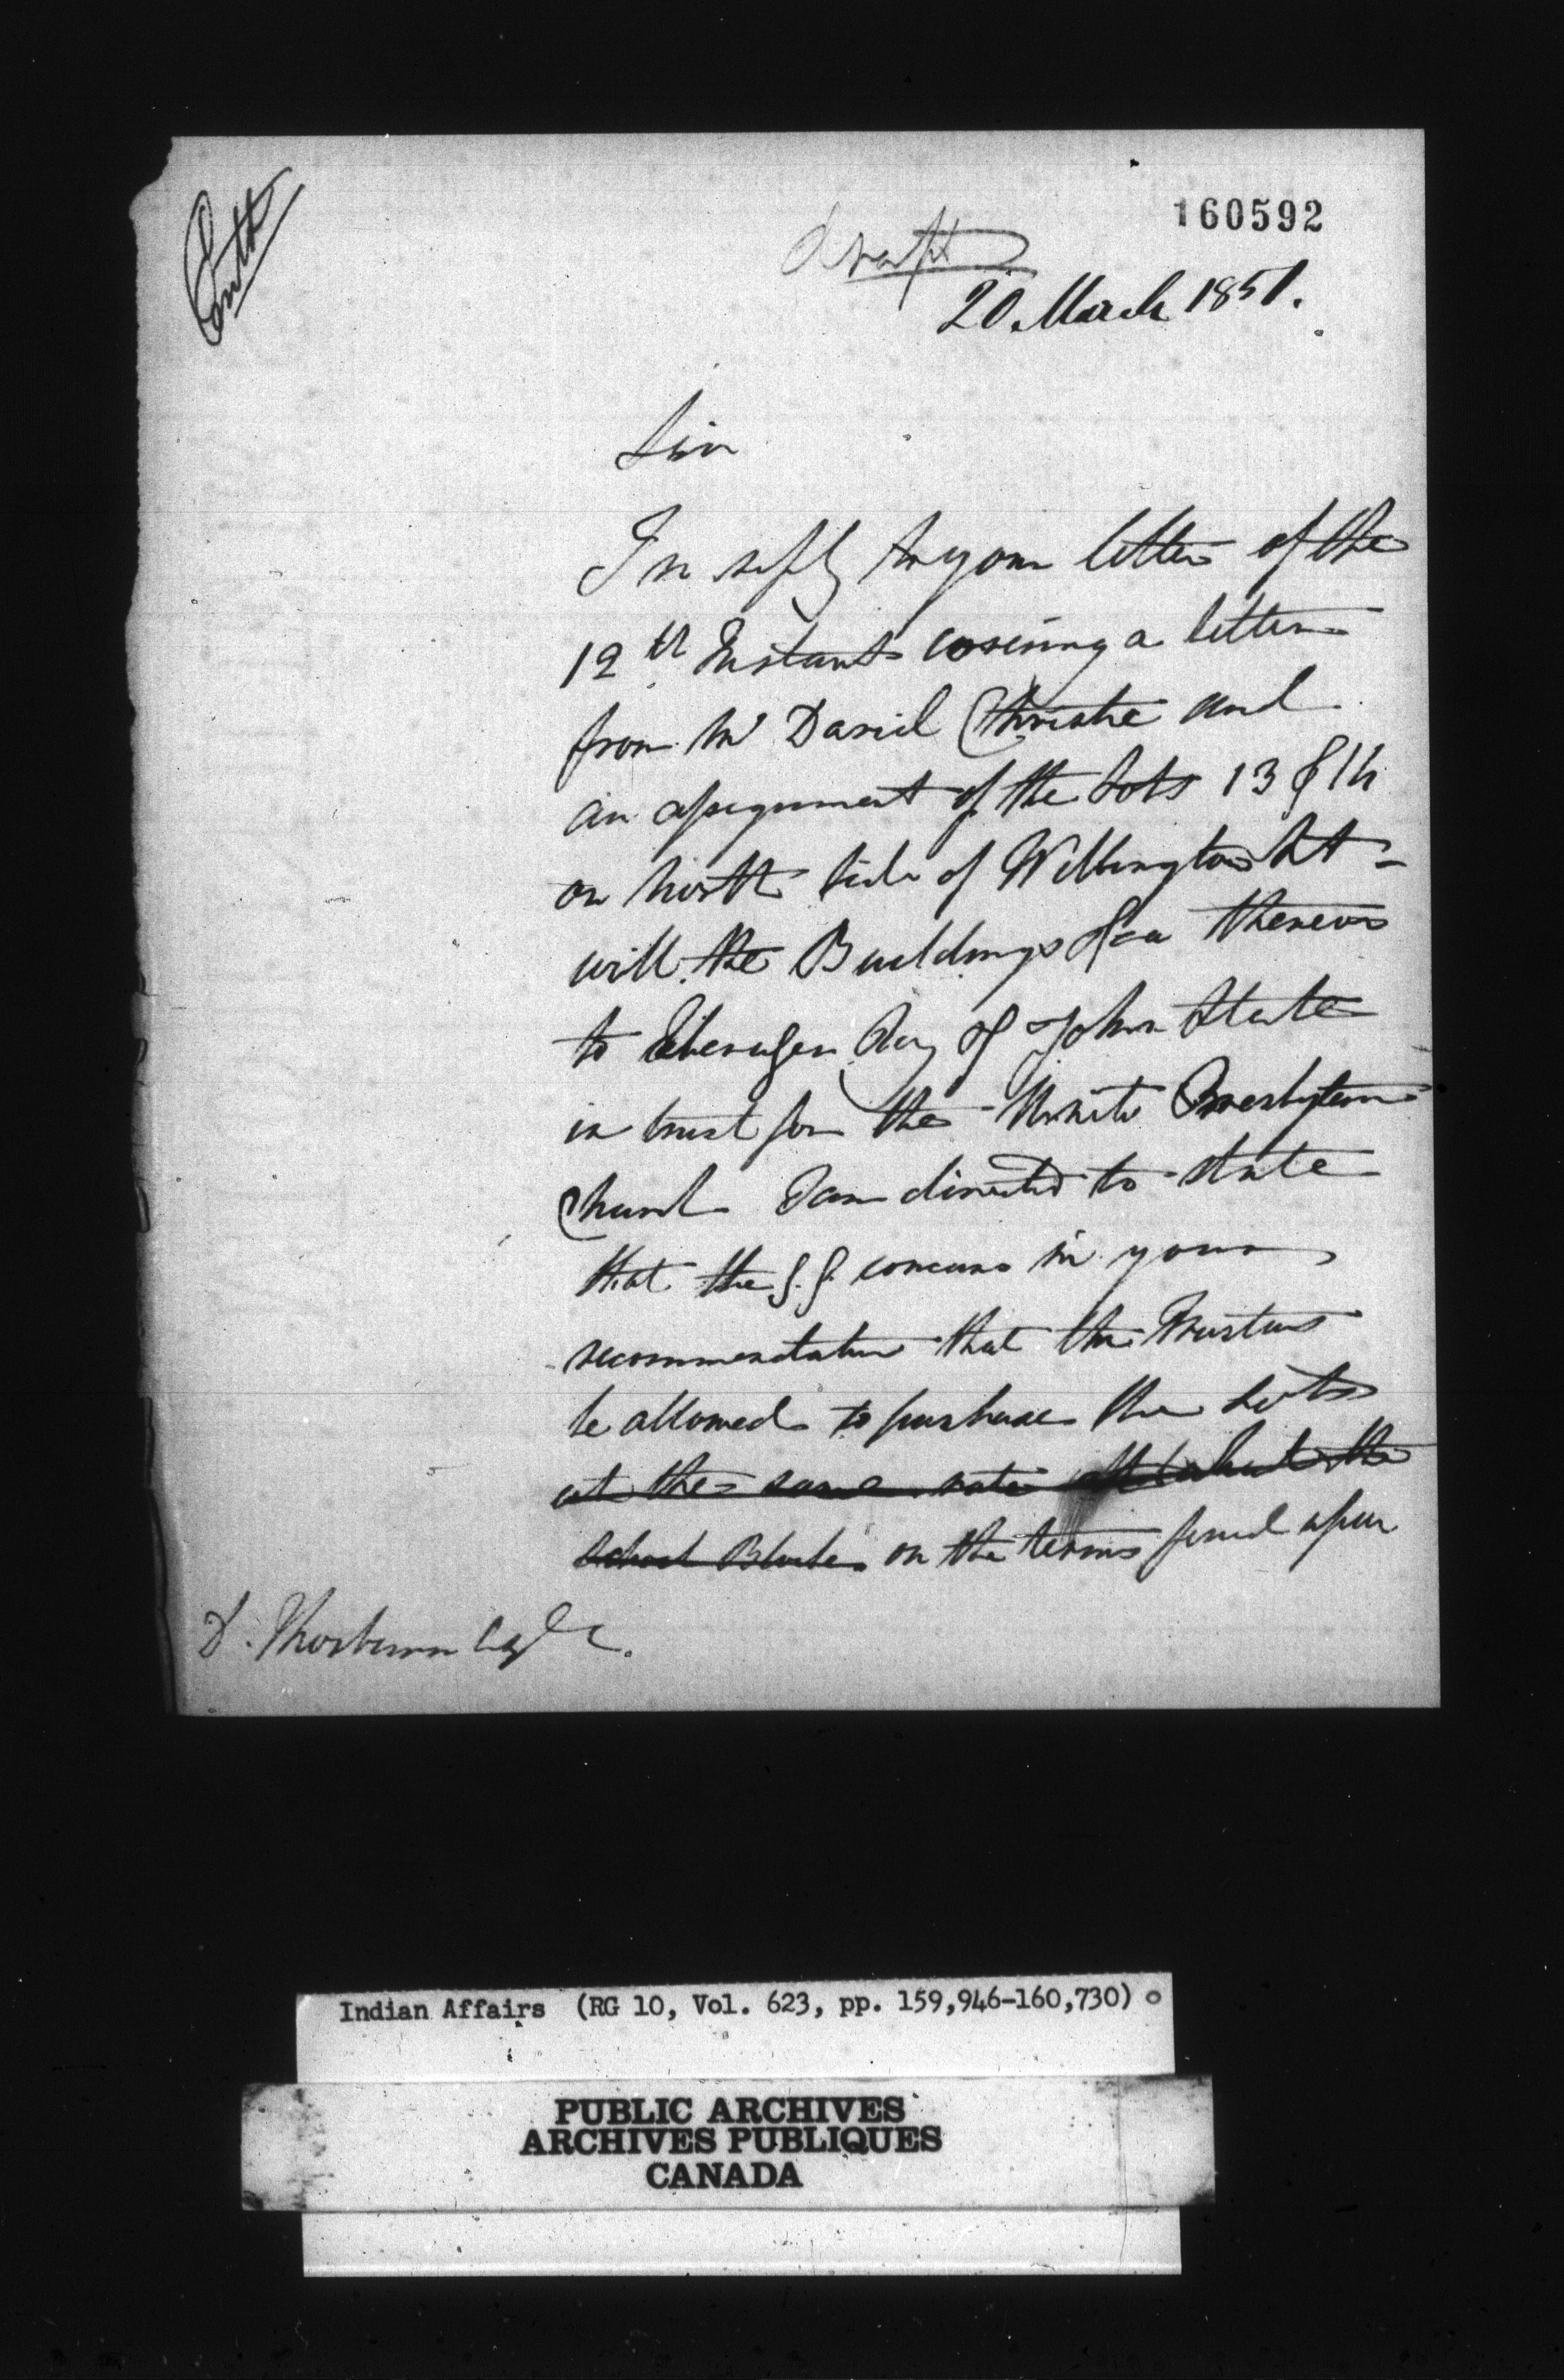 160592
draft
20. March 1851.
Sir
In reply to your letter of the
12th Instant covering a letter
from Mr David Christie and
an assignment of the Lots 13 & 14
on North Side of Wellington St =
with the Buildings &ca thereon
to Ebenezer Roy & John Steele
in trust for the United Presbyterian
Church I am directed to state
that the G. G. concurs in your
recommendation that the Trustees
be allowed to purchase the Lots
at the same rate as the
School Block on the terms fixed upon
D. Thorburn Esqre.
Indian Affairs (RG 10, Vol. 623, pp. 159,946-160,730)
PUBLIC ARCHIVES
ARCHIVES PUBLIQUES
CANADA